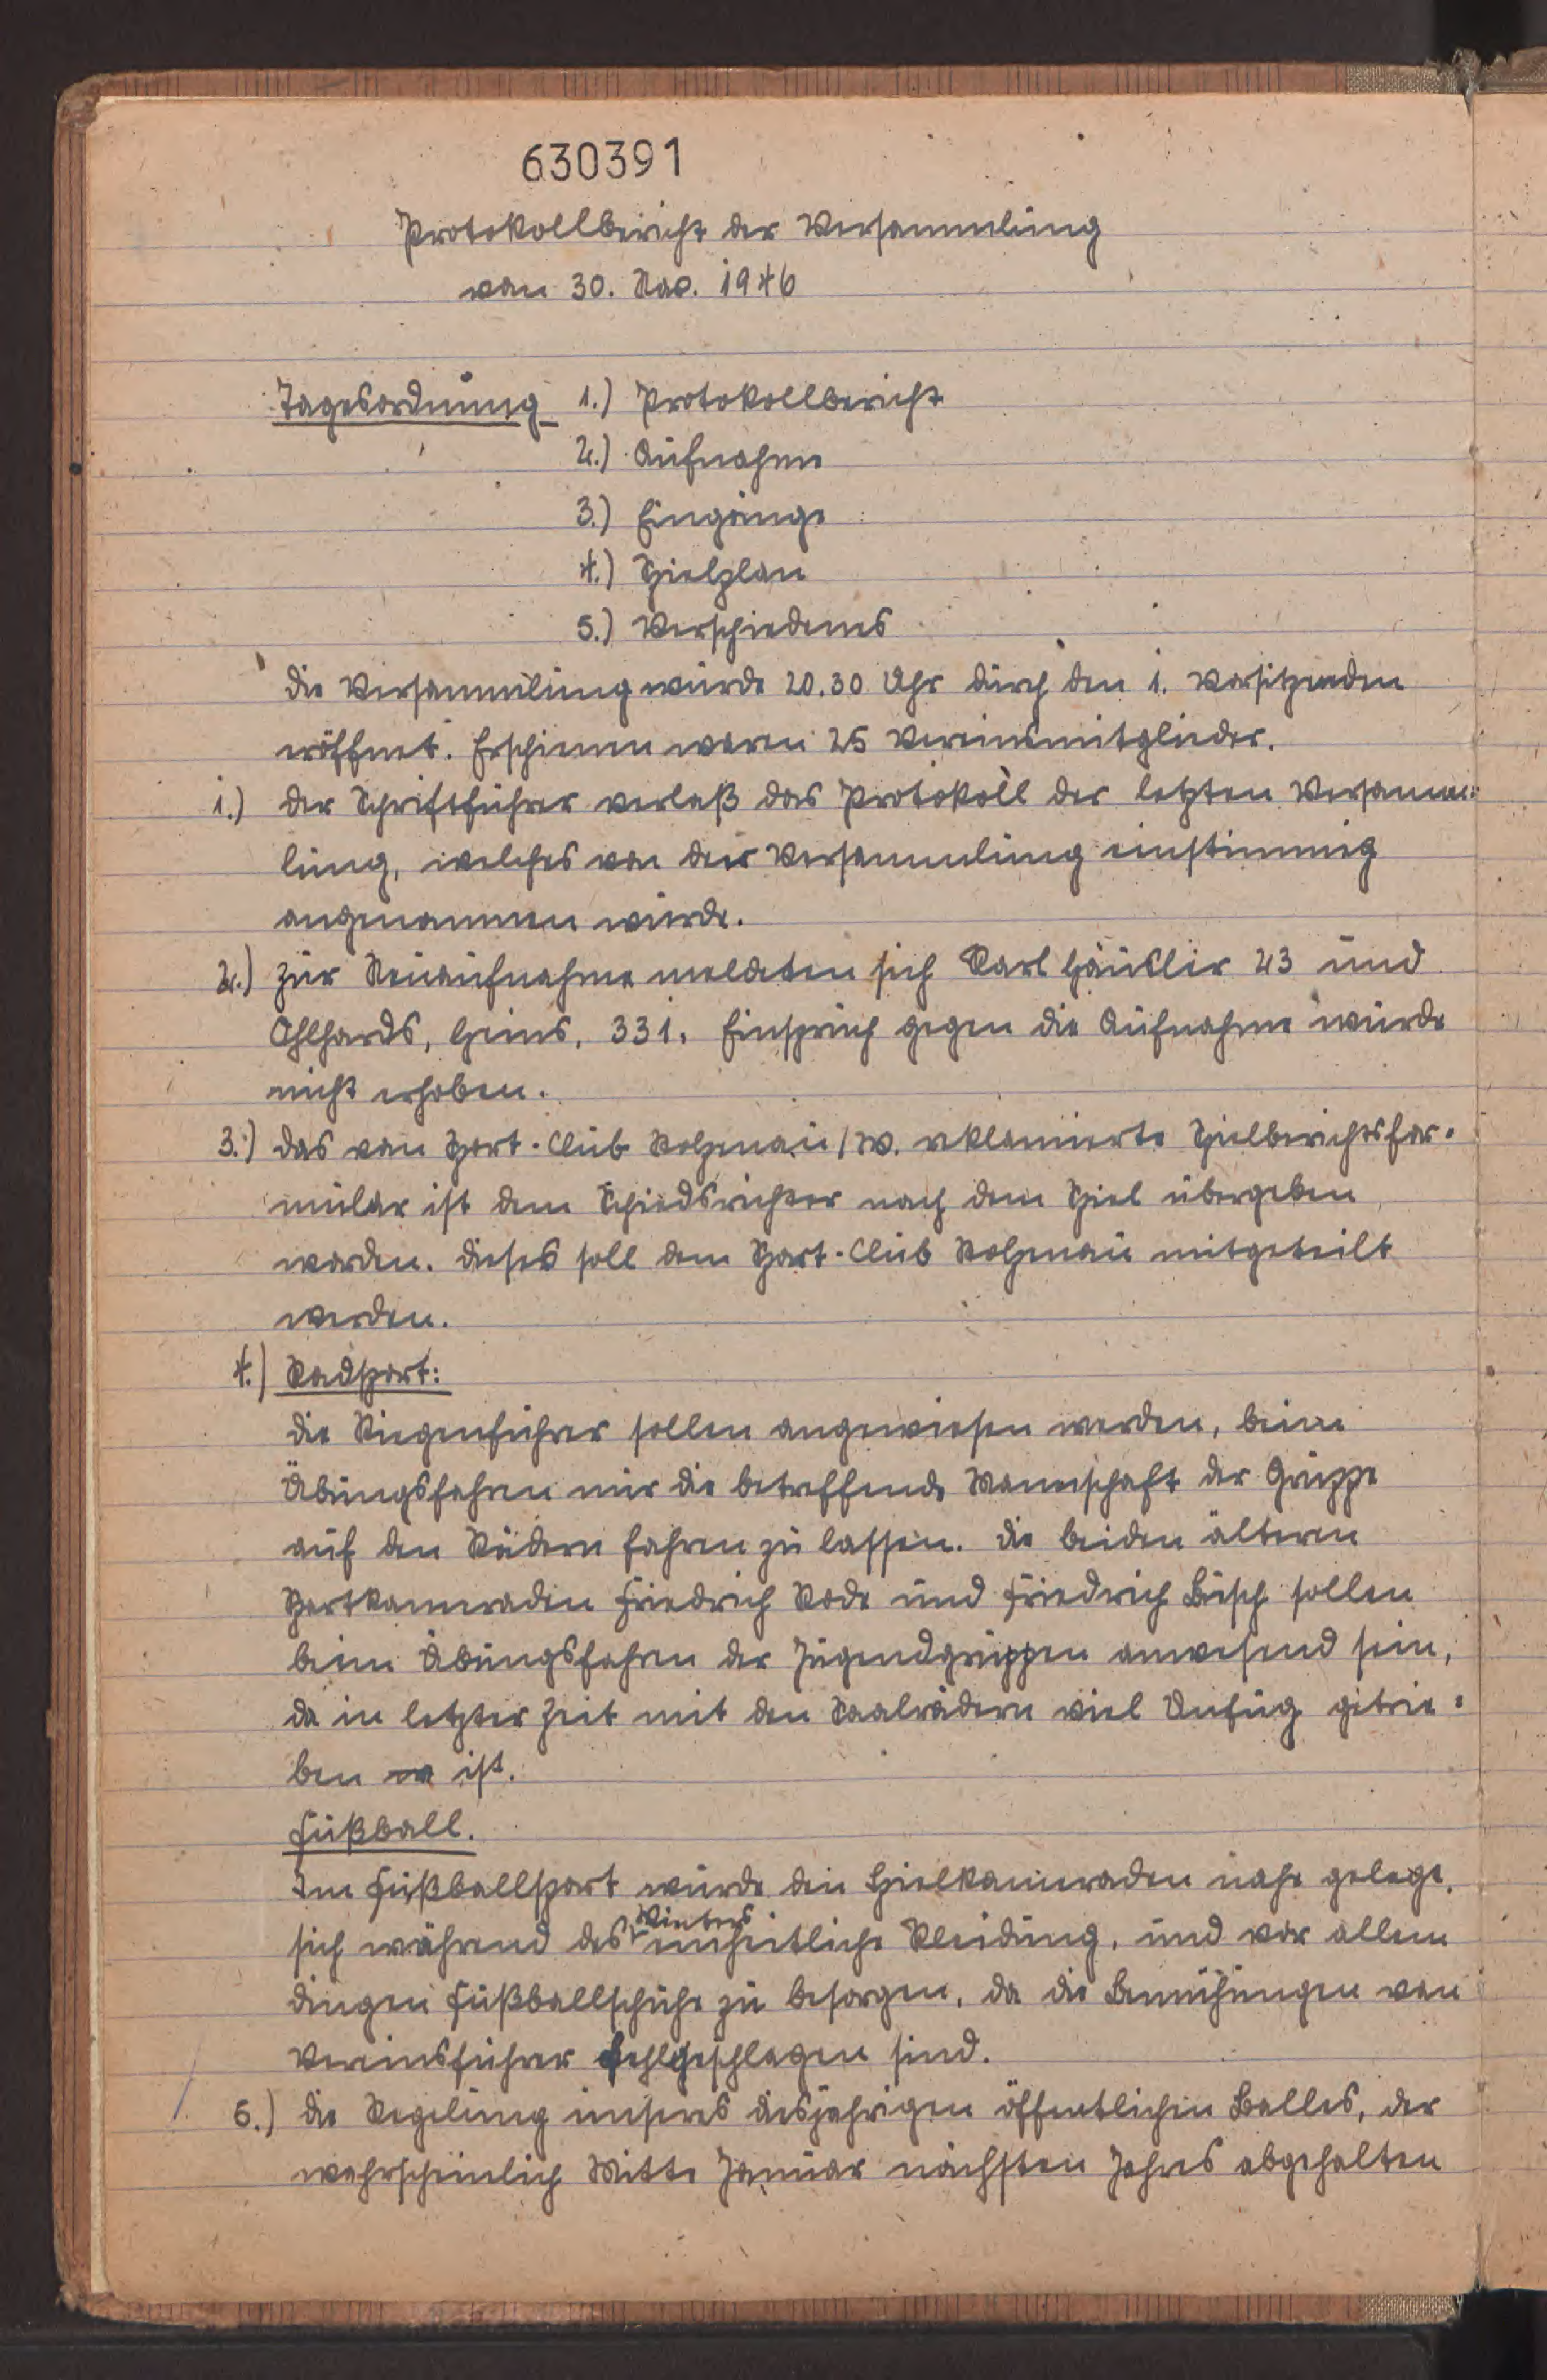 630391
Protokollbericht der Versammlung
vom 30. Nov. 1946
Tagesordnung 1.) Protokollbericht
2.) Aufnahme
3.) Eingänge
4.) Spielplan
5.) Verschiedenes
Die Versammlung wurde 20.30 Uhr durch den 1. Vorsitzenden
eröffnet. Erschienen waren 25 Vereinsmitglieder.
1.) Der Schriftführer verlaß das Protokoll der letzten Versamm=
lung, welches von der Versammlung einstimmig
angenommen wurde.
2.) Zur Neuaufnahme meldeten sich Karl 23 und
Ahlhards, Heins, 331. Einspruch gegen die Aufnahme wurde
nicht erhoben.
3.) Das vom Sport-Club Stolzenau/W. reklamierte Spielberichtsfor-
mular ist dem Schiedsrichter nach dem Spiel übergeben
worden. Dieses soll dem Sport-Club Stolzenau mitgeteilt
werden.
4.) Radsport:
Die Riegenführer sollen angewiesen werden, beim
Übungsfahren nur die betreffende Mannschaft der Gruppe
auf den Rädern fahren zu lassen. Die beiden älteren
Sportkameraden Friedrich Rode und Friedrich Busch sollen
beim Übungsfahren der Jugendgruppen anwesend sein,
da in letzter Zeit mit den Saalrädern viel Unfug getrie=
ben ist.
Fußball.
Im Fußballsport wurde den Spielkameraden nahe gelegt,
sich während des Winters einheitliche Kleidung, und vor allem
dingen Fußballschuhe zu besorgen, da die Bemühungen vom
Vereinsführer fehlgeschlagen sind.
5.) Die Regelung unseres diesjährigen öffentlichen Balles, der
wahrscheinlich Mitte Januar nächsten Jahres abgehalten